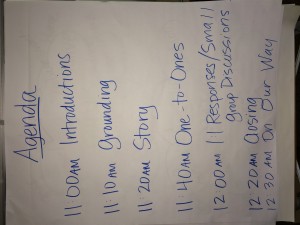 Agenda
11:00AM Introductions
11:10 AM Grounding
11:20AM Story
11:40AM One-to-Ones
12:00AM 11 Responses/Small
group Discussions
12:20AM Closing
12:30AM On Our Way